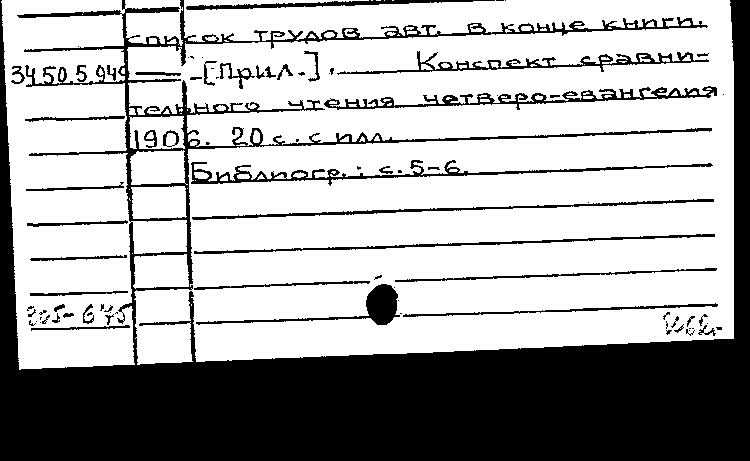 список трудов авт. в конце книги.
34.50.5.949 —— -[Прил.]. —— Конспект сравни-
тельного чтения четверо-евангелия
1906. 20 с. с илл.
Библиогр.: с. 5-6.
205-675